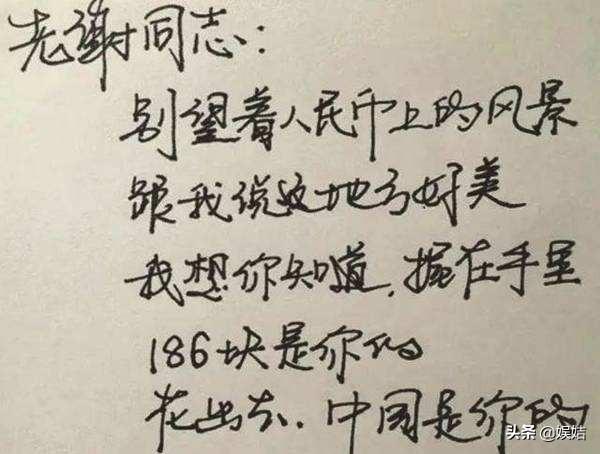 老谢同志:
别望着人民币上的风景
跟我说这地方好美
我想你知道,握在手里
186块是你的
花出去,中国是你的
头条 @娱姞